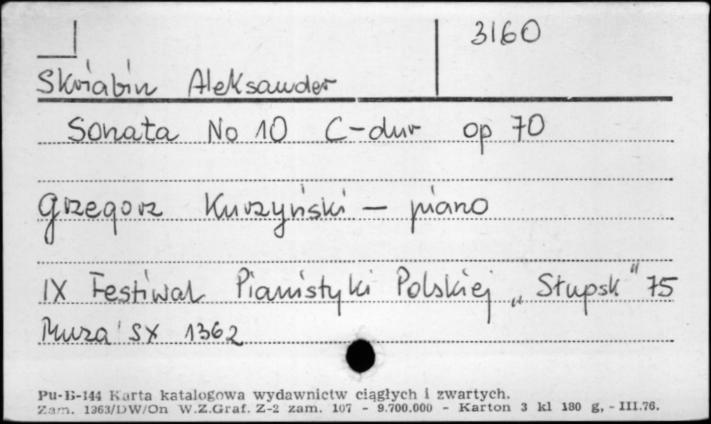 3160
Skriabin Aleksander
Sonata No 10 C-dur op 70
Grzegorz Kurzyński - piano
IX Festiwal Pianistyki Polskiej „Słupsk" 75
Muza SX 1362
Pu-B-144 Karta katalogowa wydawnictw ciągłych i zwartych.
Zam. 1363/DW/On W.Z.Graf. Z-2 zam. 107 - 9.700.000 - Karton 3 kl 180 g, - III.76.